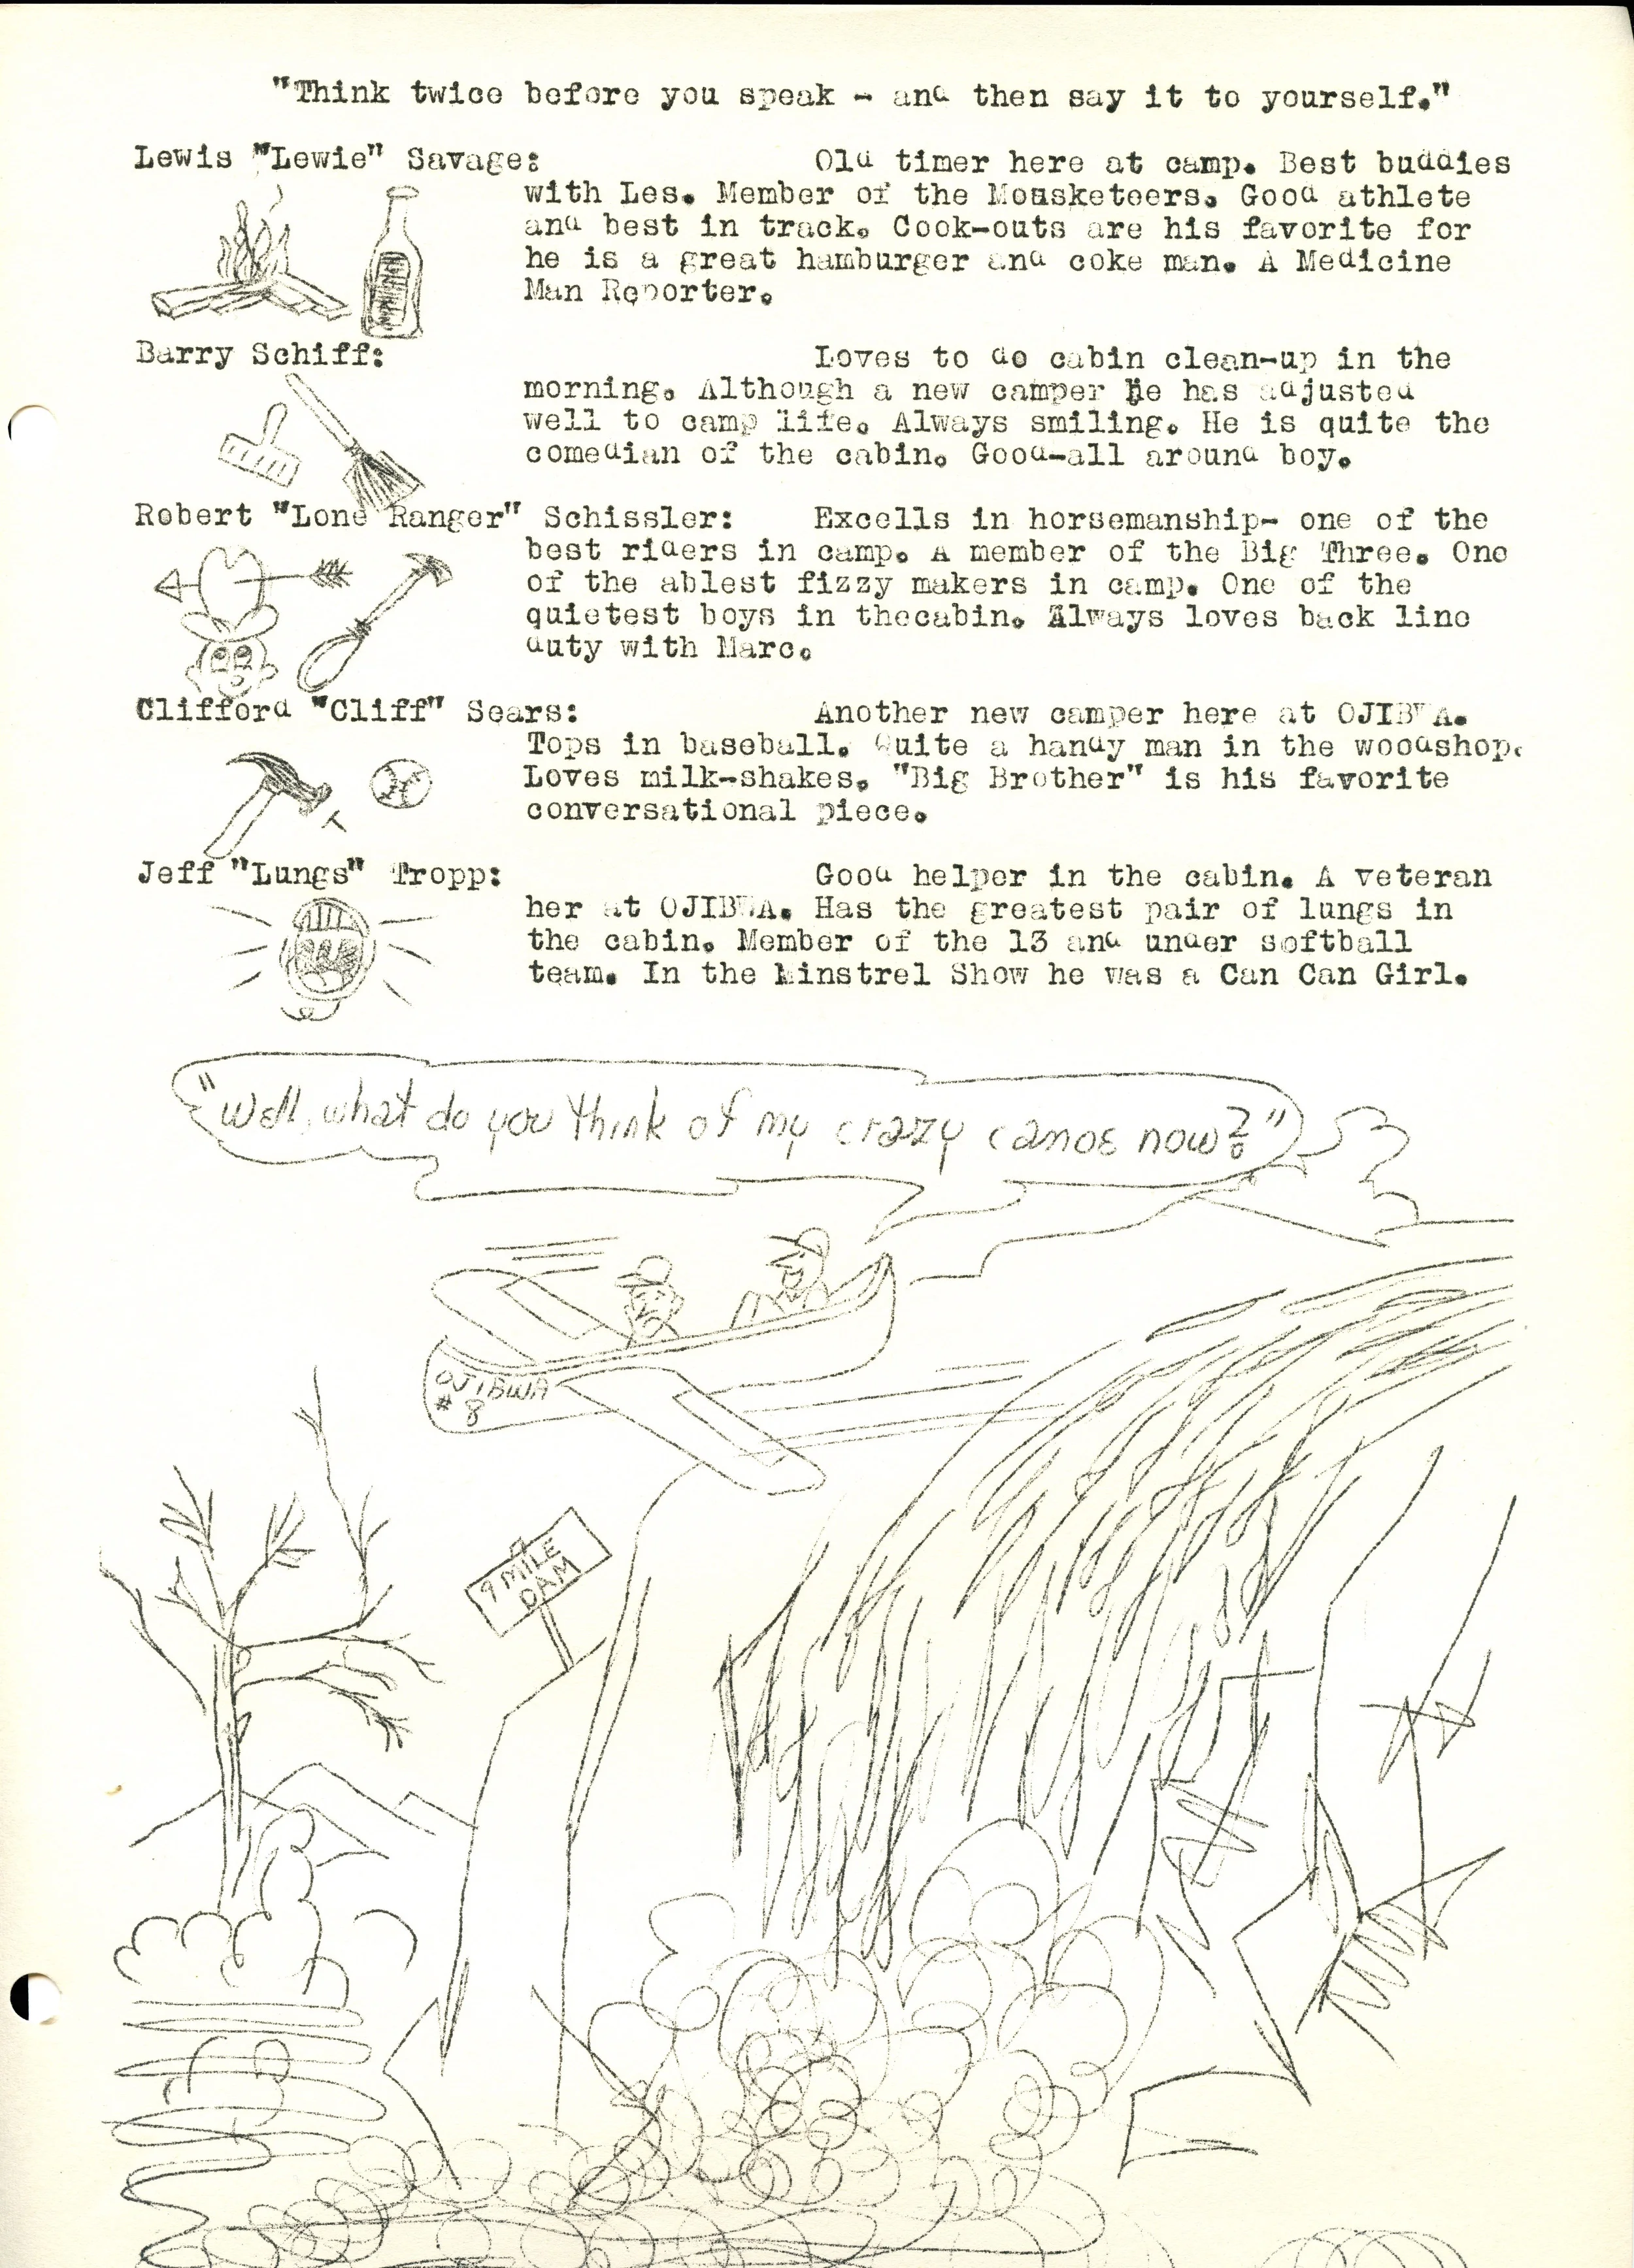 "Think twice before you speak - and then say it to yourself."
Lewis "Lewie" Savage: Old timer here at camp. Best buddies
with Les. Member of the Mousketeers. Good athlete
and best in track. Cook-outs are his favorite for
he is a great hamburger and coke man. A Medicine
Man Reporter.
Barry Schiff: Loves to do cabin clean-up in the
morning. Although a new camper he has adjusted
well to camp life. Always smiling. He is quite the
comedian of the cabin. Good-all around boy.
Robert "Lone Ranger" Schissler: Excells in horsemanship- one of the
best riders in camp. A member of the Big Three. One
of the ablest fizzy makers in camp. One of the
quietest boys in thecabin. Always loves back line
duty with Marc.
Clifford "Cliff" Sears: Another new camper here at OJIBWA.
Tops in baseball. Quite a handy man in the woodshop.
Loves milk-shakes. "Big Brother" is his favorite
conversational piece.
Jeff "Lungs" Tropp: Good helper in the cabin. A veteran
her at OJIBWA. Has the greatest pair of lungs in
the cabin. Member of the 13 and under softball
team. In the Minstrel Show he was a Can Can Girl.
"Well, what do you think of my crazy canoe now?"
OJIBWA
# 8
9 MILE
DAM